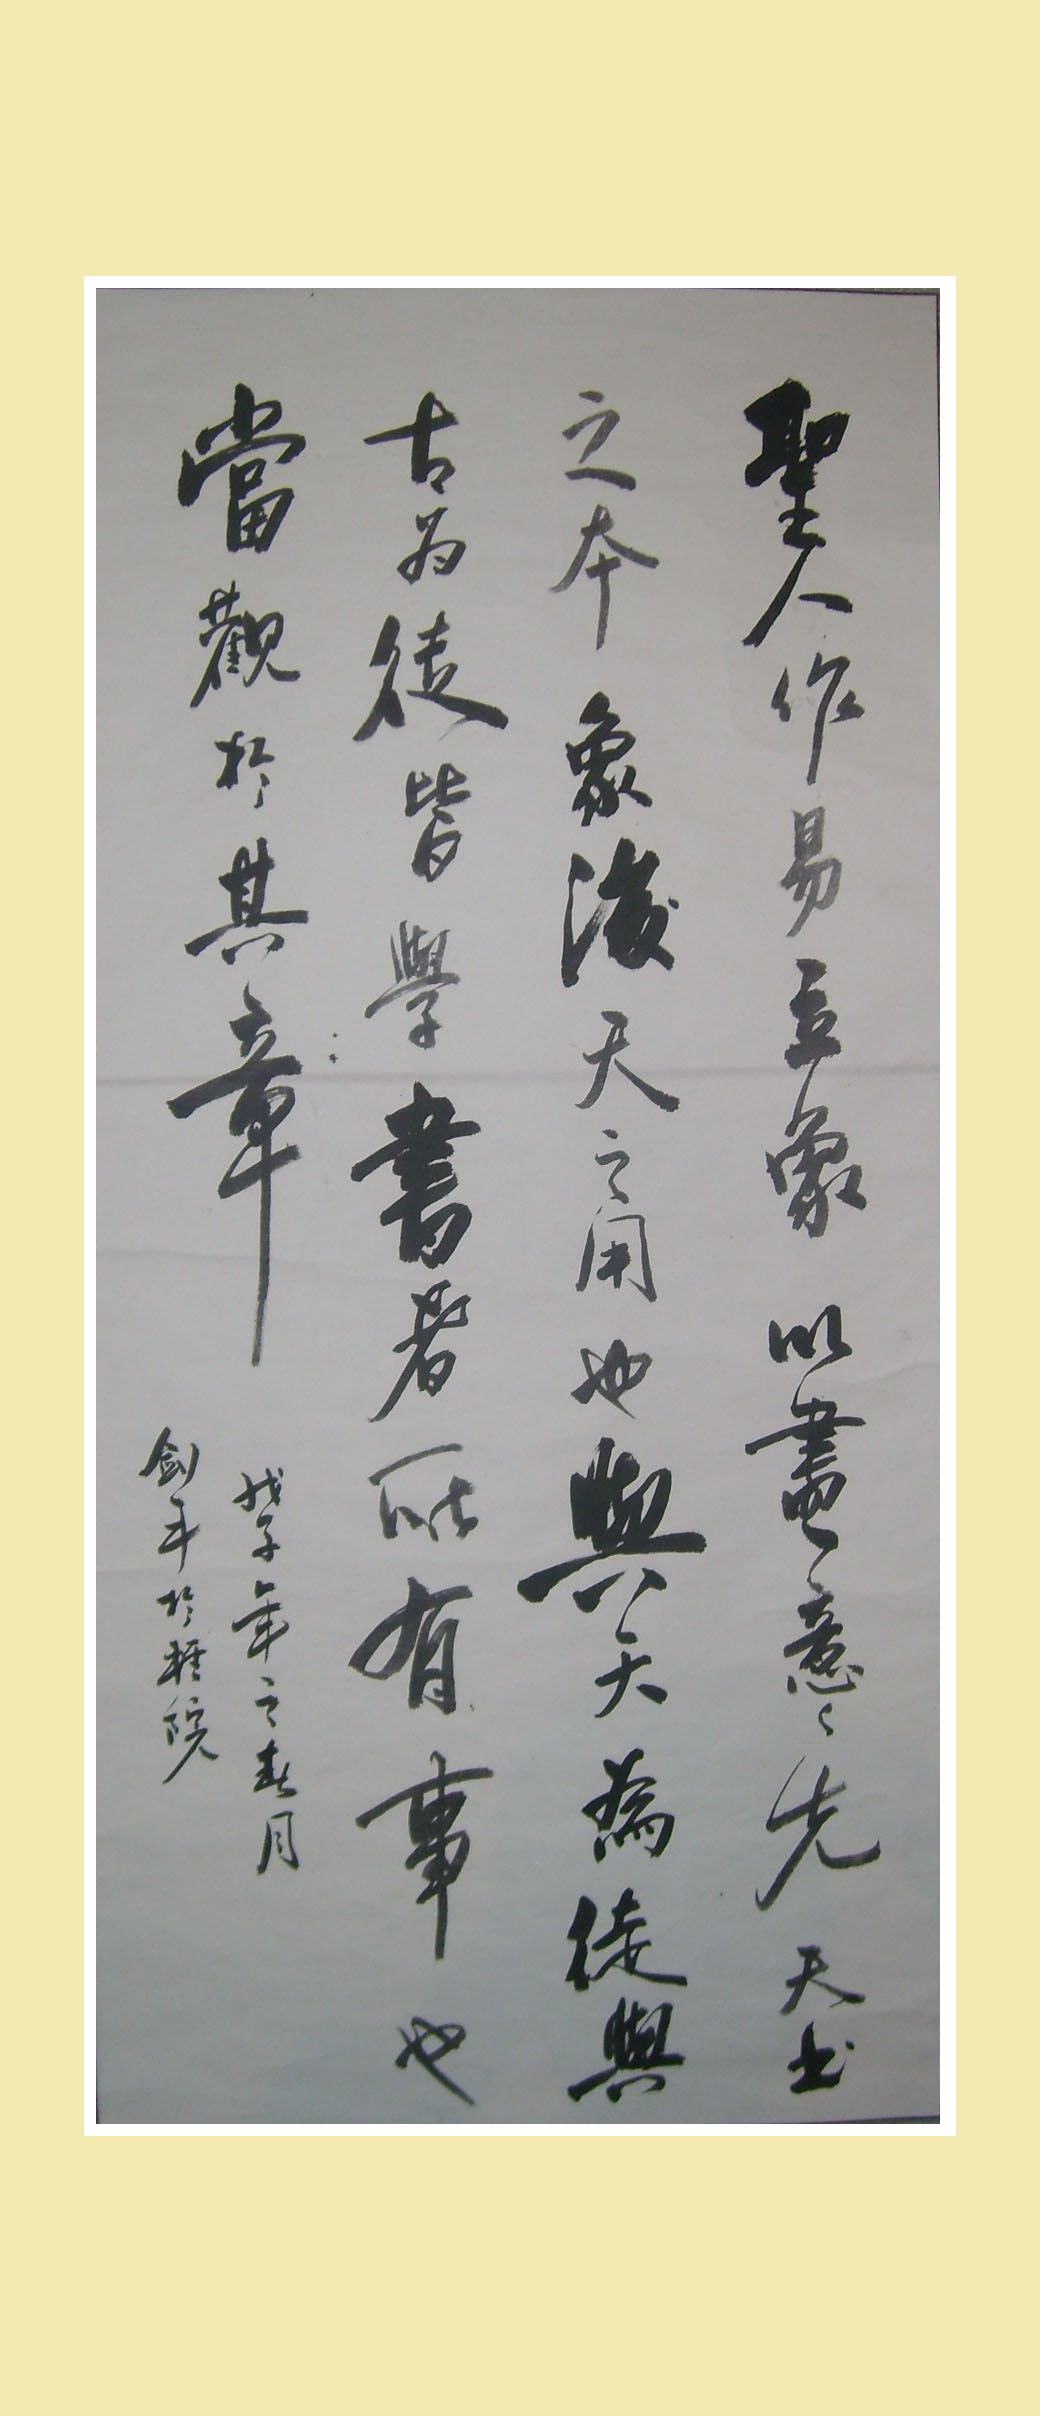 聖人作易立象以盡意々先天书
之本象後天之用也與天為徒與
古为徒皆學書者所有事也
當觀於其章
戊子年之春月
剑平於程院